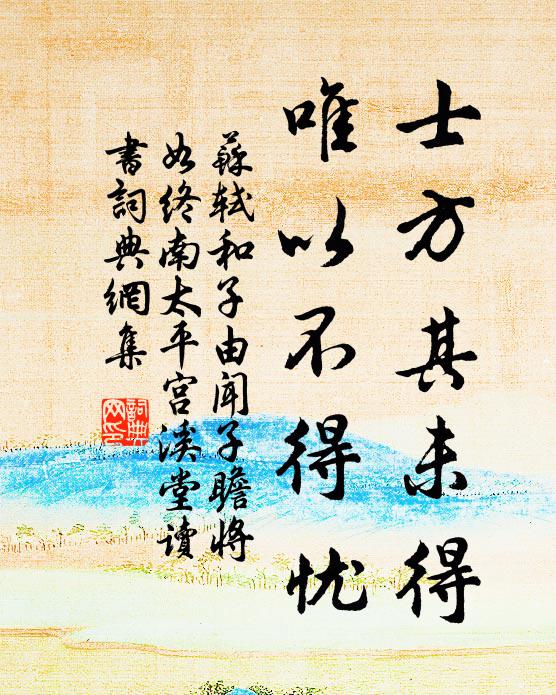 士方其未得
唯以不得忧
蘇軾和子由闻子瞻将
如终南太平宫溪堂读
書詞典網集